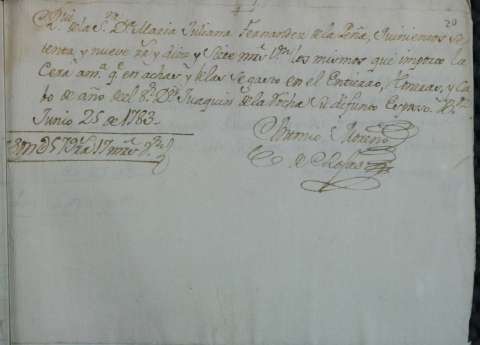 20
Rvi
de la Sra. Da. Maria Juliana Fernandez de la Peña, Quinientos se
tenta y nueve rs. y diez y siete mrs. vn. los mismos que importó la
Cera amª. qe. en achas y velas se gastó en el Entierro, Honrras, y Ca
bo de año del Sr. Dn. Juaquin de la Rocha su difunto Esposo.
Junio 25 de 1783.
Antonio Moreno
Son 579 rs. 17 mrs. vn.
de Rojas